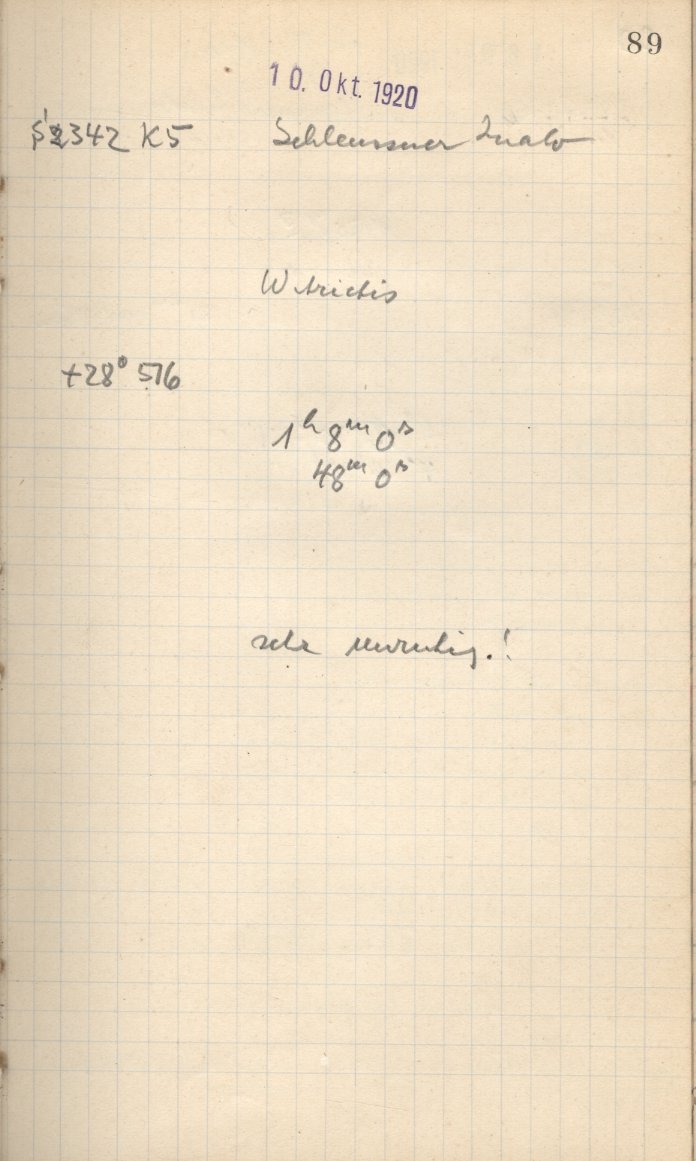 89
10. Okt. 1920
S 2342 K5 Schleussner
W Arietis
+28° 516
1ʰ 8ᵐ 0ˢ
48ᵐ 0ˢ
sehr unruhig.!